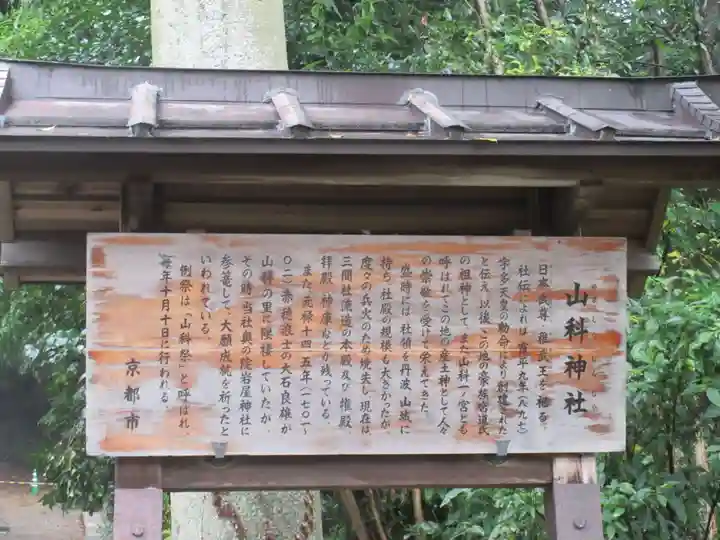 山科神社
日本武尊・稚武王を祀る。
社伝によれば、寛平九年(八九七)
宇多天皇の勅命により創建された
と伝え、以後、この地の豪族宮道氏
の祖神として、また山科一ノ宮とも
呼ばれてこの地の産土神として人々
の崇敬を受けて栄えてきた。
盛時には社領を丹波、山城に
持ち、社殿の規模も大きかったが、
度々の兵火のため焼失し、現在は、
三間社流造の本殿及び権殿、
拝殿、神庫などが残っている。
また、元禄十四・五年(一七〇一〜
〇二)赤穂浪士の大石良雄が
山科の里に隠棲していたが、
その時、当社奥の院岩屋神社に
参篭して、大願成就を祈ったと
いわれている。
例祭は「山科祭」と呼ばれ、
毎年十月十日に行われる。
京都市